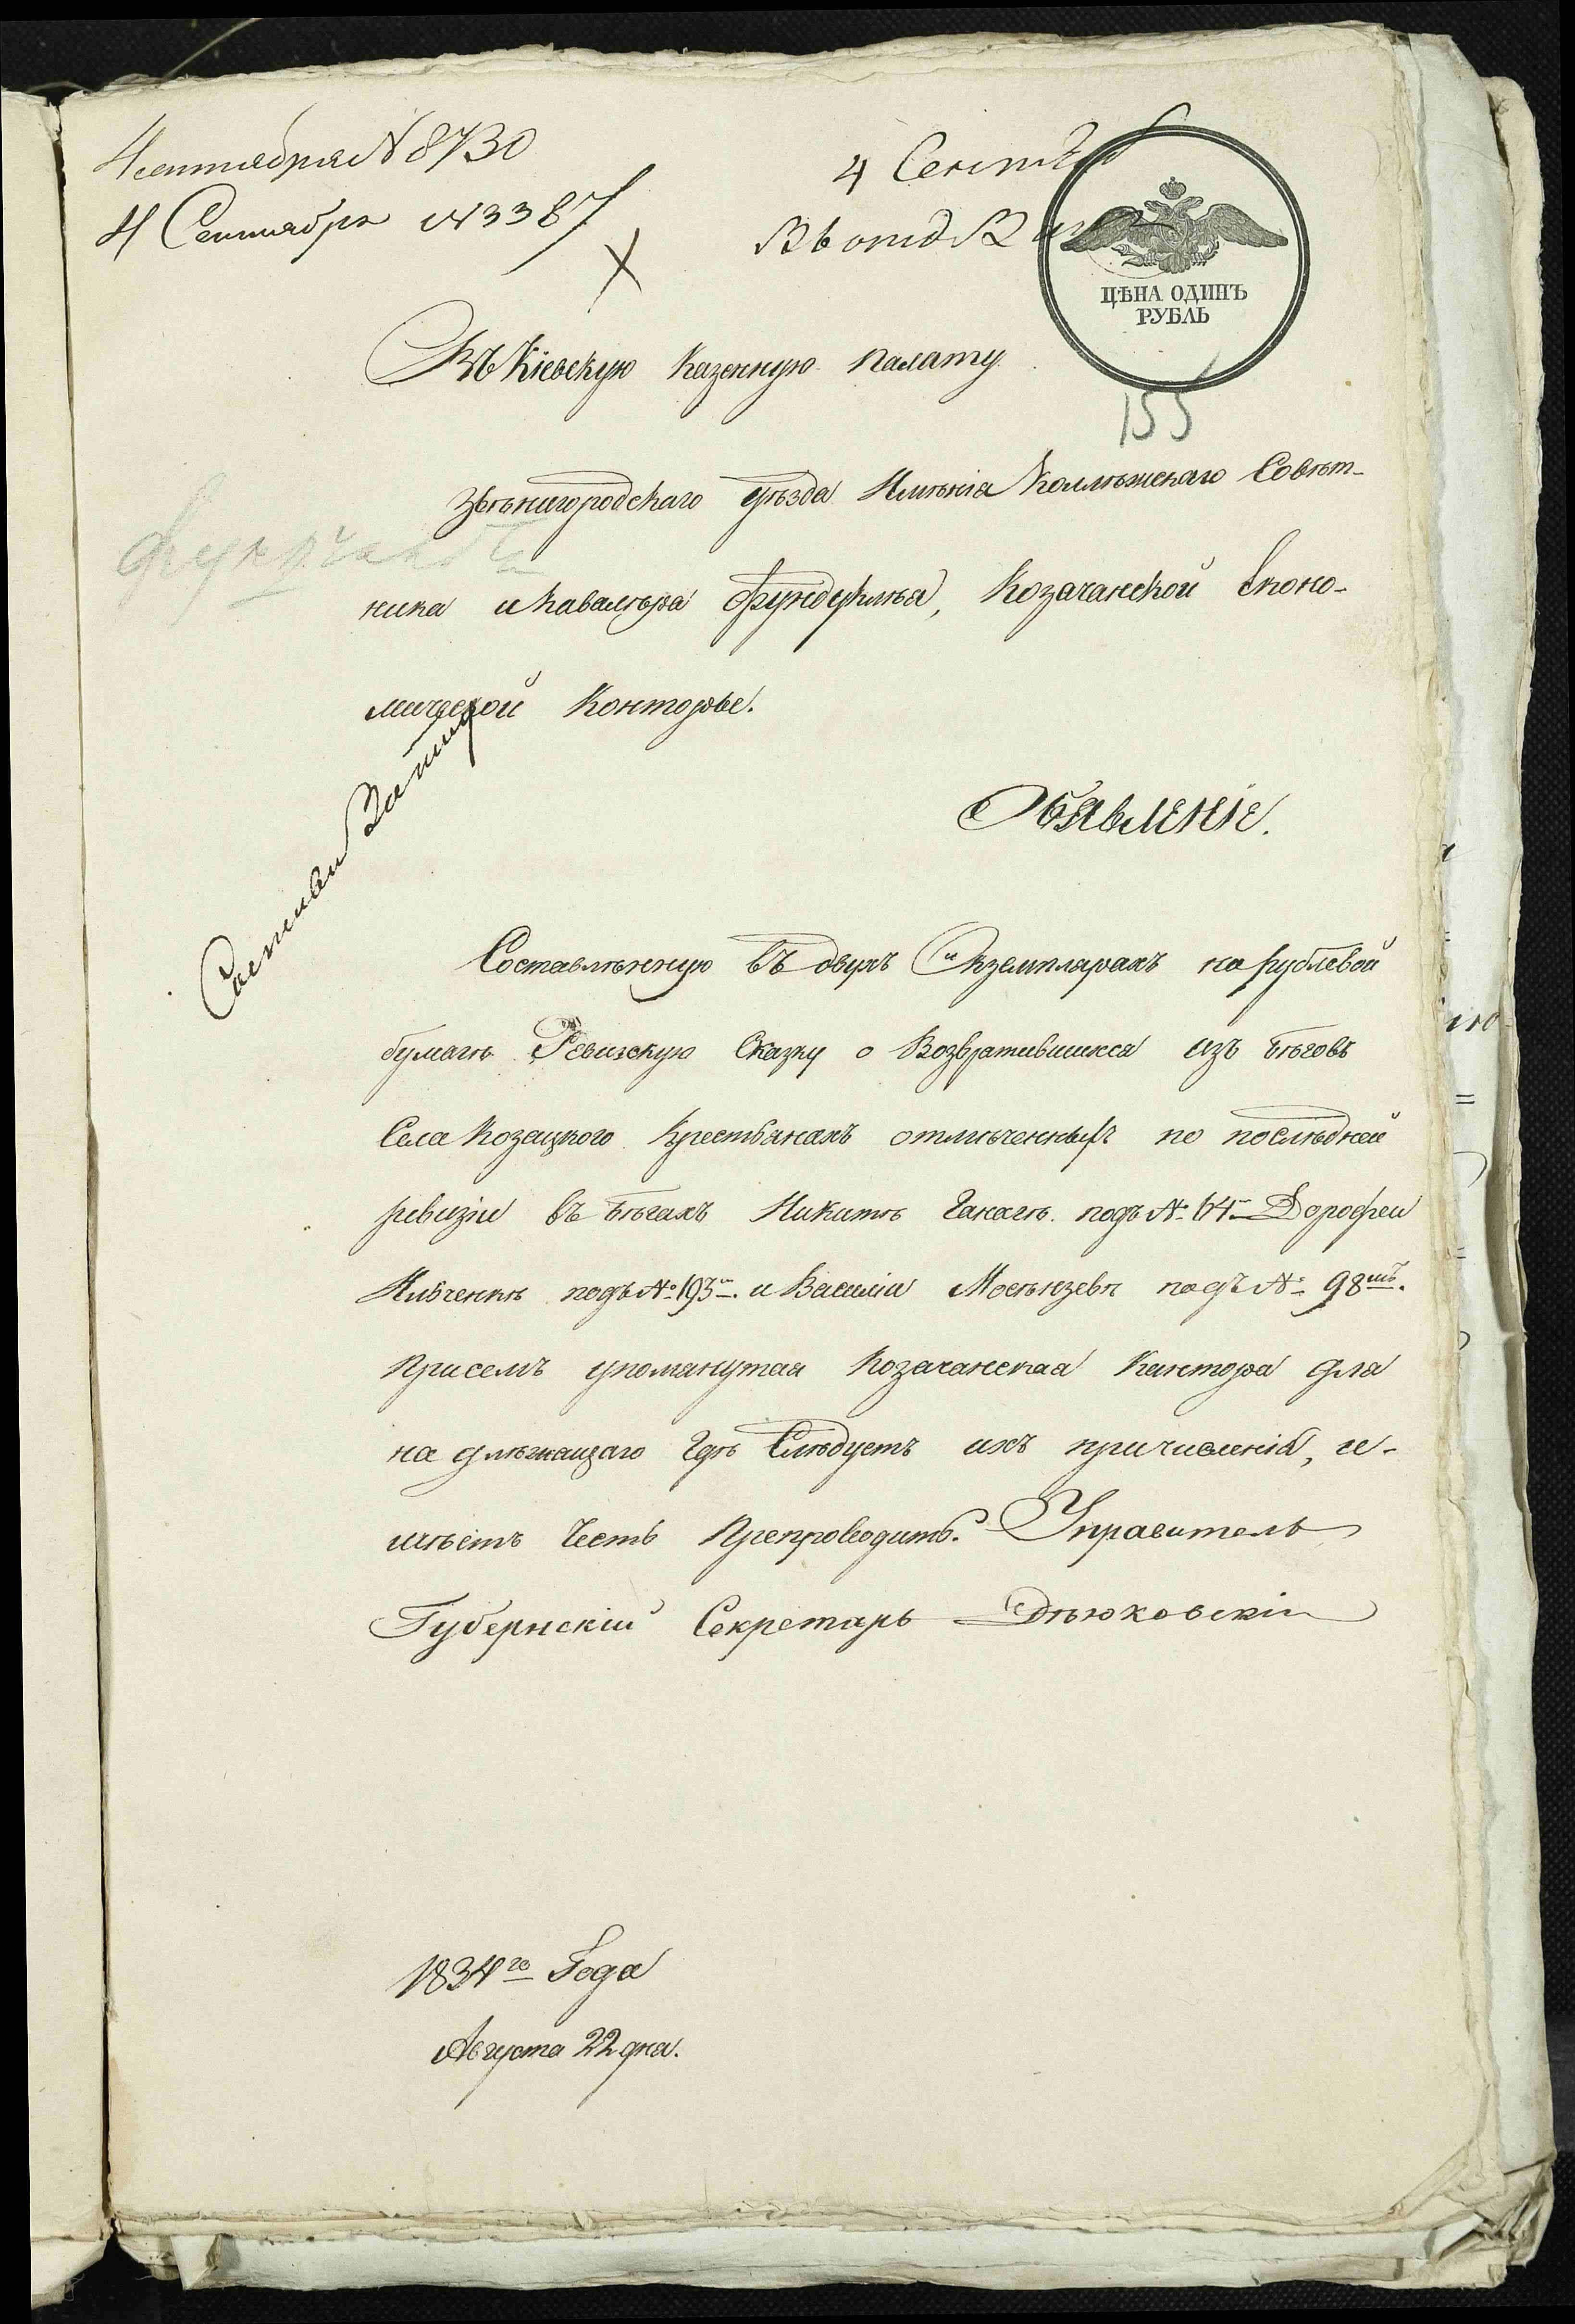 4 сентября № 8730
4 Сентября № 3387
4 Сентяб
Въ отд
ЦѢНА ОДИНЪ
РУБЛЬ
155
Въ Кіевскую Казенную Палату
Звѣнигородскаго уѣзда Имѣнія Коллѣжскаго Совѣт-
ника и Кавалѣра Фундуклѣя, Козачанской Еконо-
мической Конторы.
Объявленіе.
Составлѣнную въ двухъ Экземплярахъ на рублевой
бумагѣ Ревизскую Сказку о Возвратившихся изъ бѣговъ
Села Козацкого Крестьянахъ отмѣченныхъ по послѣдней
ревизіи въ бѣгахъ Никитѣ Ганагѣ подъ № 64м Дорофеи
Ивченкѣ подъ № 193м. и Василіи Мосѣнзевѣ подъ № 98мъ.
При семъ упомянутая Козачанская Кантора для
надлѣжащаго гдѣ Слѣдуетъ ихъ причисленія, и-
мѣетъ Честь Препроводить. Управитель
Губернскій Секретарь
1834го Года
Августа 22 дня.